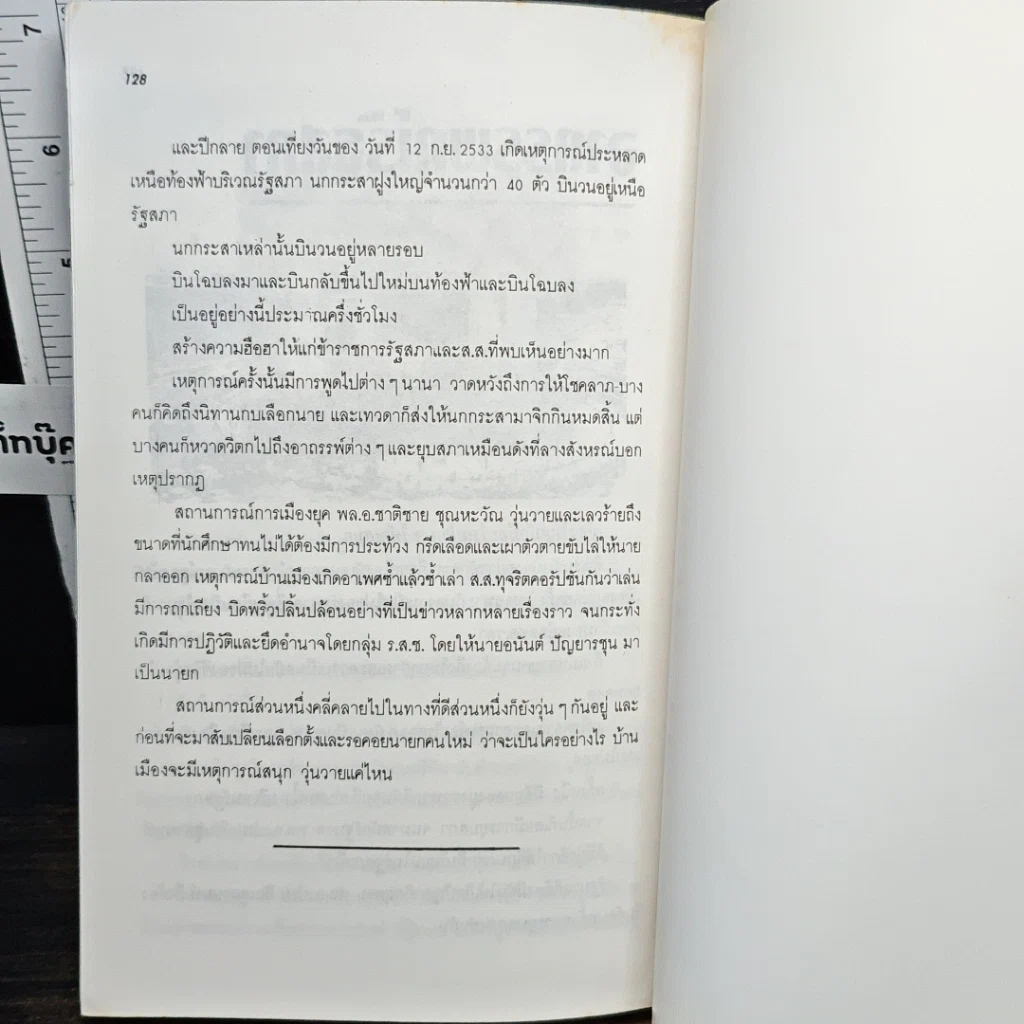 7
6
5
ก็ทบุ๊ค
128
และปีกลาย ตอนเที่ยงวันของ วันที่ 12 ก.ย. 2533 เกิดเหตุการณ์ประหลาด
เหนือท้องฟ้าบริเวณรัฐสภา นกกระสาฝูงใหญ่จำนวนกว่า 40 ตัว บินวนอยู่เหนือ
รัฐสภา
นกกระสาเหล่านั้นบินวนอยู่หลายรอบ
บินโฉบลงมาและบินกลับขึ้นไปใหม่บนท้องฟ้าและบินโฉบลง
เป็นอยู่อย่างนี้ประมาณครึ่งชั่วโมง
สร้างความฮือฮาให้แก่ข้าราชการรัฐสภาและส.ส.ที่พบเห็นอย่างมาก
เหตุการณ์ครั้งนั้นมีการพูดไปต่าง ๆ นานา วาดหวังถึงการให้โชคลาภ-บาง
คนก็คิดถึงนิทานกบเลือกนาย และเทวดาก็ส่งให้นกกระสามาจิกกินหมดสิ้น แต่
บางคนก็หวาดวิตกไปถึงอาถรรพ์ต่าง ๆ และยุบสภาเหมือนดังที่ลางสังหรณ์บอก
เหตุปรากฏ
สถานการณ์การเมืองยุค พล.อ.ชาติชาย ชุณหะวัณ วุ่นวายและเลวร้ายถึง
ขนาดที่นักศึกษาทนไม่ได้ต้องมีการประท้วง กรีดเลือดและเผาตัวตายขับไล่ให้นาย
กลาออก เหตุการณ์บ้านเมืองเกิดอาเพศซ้ำแล้วซ้ำเล่า ส.ส.ทุจริตคอรัปชั่นกันว่าเล่น
มีการถกเถียง บิดพริ้วปลิ้นปล้อนอย่างที่เป็นข่าวหลากหลายเรื่องราว จนกระทั่ง
เกิดมีการปฏิวัติและยึดอำนาจโดยกลุ่ม ร.ส.ช. โดยให้นายอนันต์ ปัญยารชุน มา
เป็นนายก
สถานการณ์ส่วนหนึ่งคลี่คลายไปในทางที่ดีส่วนหนึ่งก็ยังวุ่น ๆ กันอยู่ และ
ก่อนที่จะมาสับเปลี่ยนเลือกตั้งและรอคอยนายกคนใหม่ ว่าจะเป็นใครอย่างไร บ้าน
เมืองจะมีเหตุการณ์สนุก วุ่นวายแค่ไหน